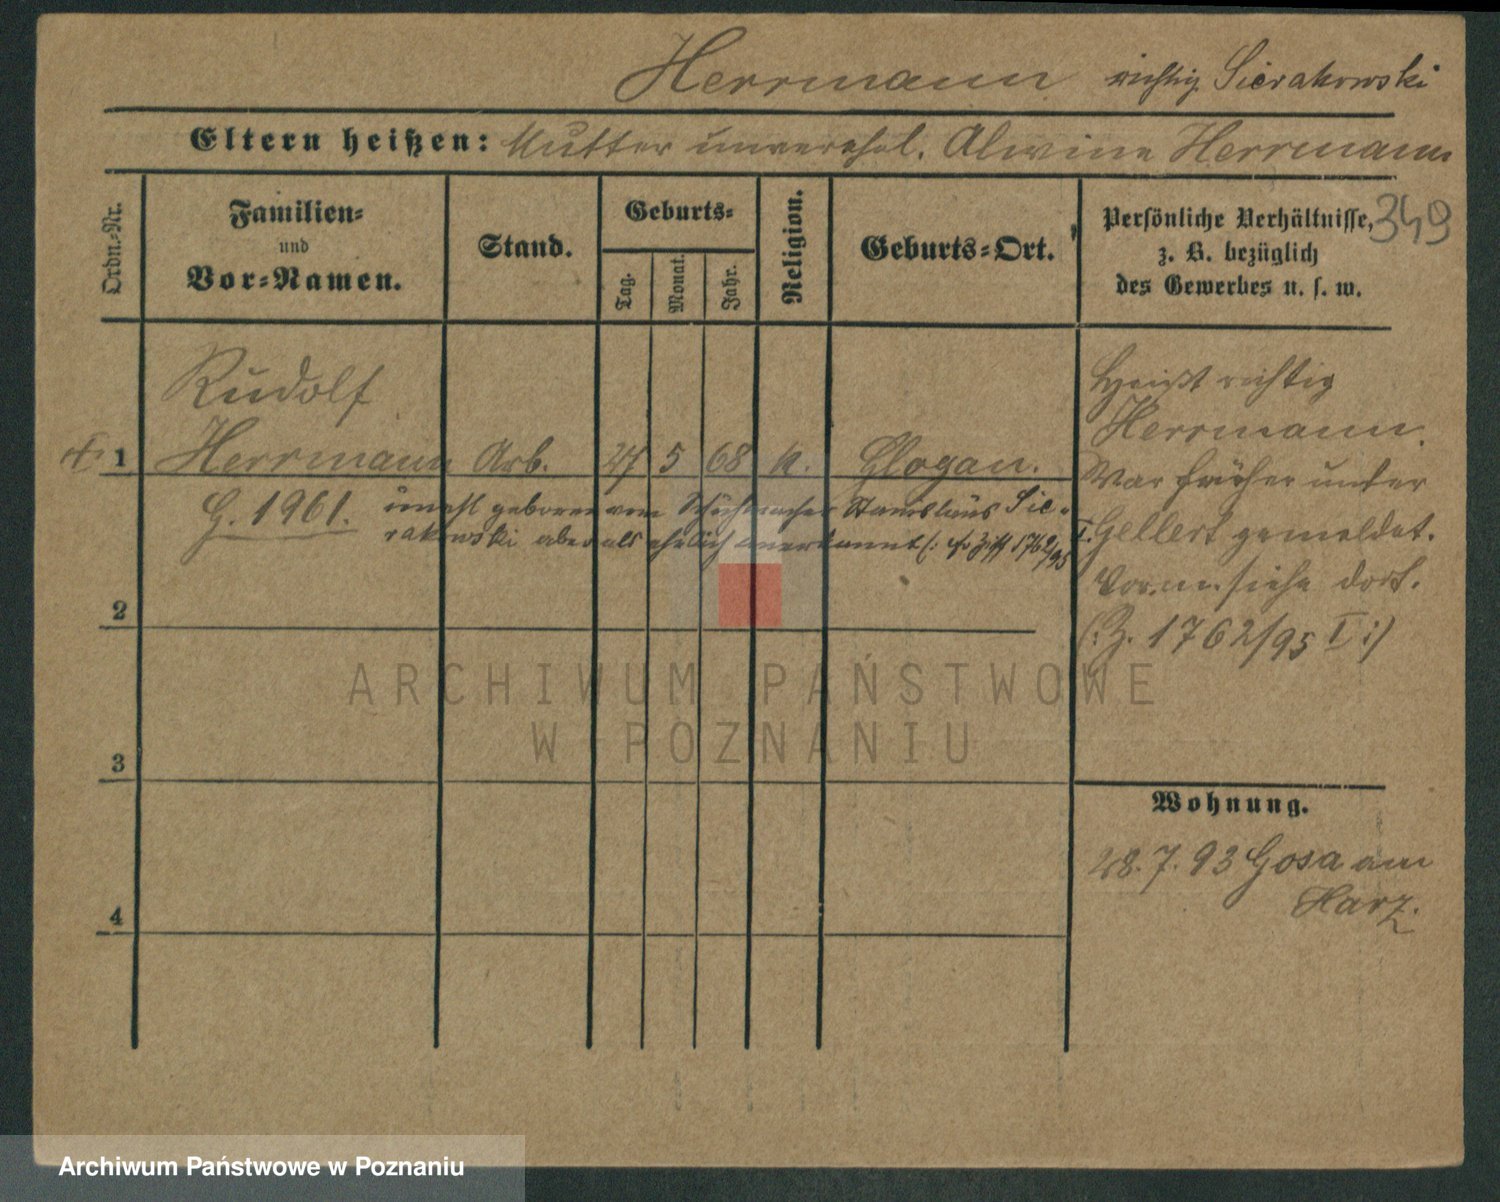 Herrmann richtig Sierakowski
Eltern heißen: Mutter unverehel. Alwine Herrmann
349
Ordn.-Nr.
Familien-
und
Vor-Namen.
Stand.
Geburts-
Tag.
Monat.
Jahr.
Religion.
Geburts-Ort.
Persönliche Verhältnisse,
z. B. bezüglich
des Gewerbes u. s. w.
Rudolf
1 Herrmann Arb. 27 5 68 k. Glogau.
G. 1961. unehl geboren vom Stanislaus Sie-
rakowski aber als ehelich anerkannt (: cf. 1762/95
2
3
4
Heißt richtig
Herrmann.
War früher unter
Gellert gemeldet.
siehe dort.
(: Z. 1762/95 I :)
Wohnung.
28.7.93 Gosa am
Harz.
ARCHIWUM PAŃSTWOWE
W POZNANIU
Archiwum Państwowe w Poznaniu